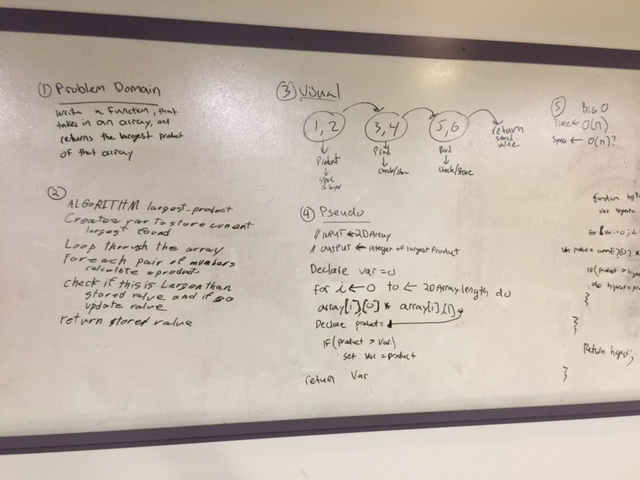 ① Problem Domain
Write a function, that
takes in an array, and
returns the largest product
of that array
②
ALGORITHM largest-product
Create a var to store current
largest found
Loop through the array
for each pair of numbers
calculate a product
check if this is Larger than
stored value and if so
update value
return stored value
③ Visual
1, 2
3, 4
5, 6
return
stored
value
Product
Prod
Prod
store
check/store
check/store
④ Pseudo
// INPUT ← 2D Array
// OUTPUT ← integer of largest Product
Declare var = 0
for i ← 0 to ← 2DArray.length do
array[i],[0] * array[i],[1]
Declare product =
if (product > Var)
set Var = product
return Var
⑤ Big O
Time ← O(n)
Space ← O(n)?
function
var highest
for
if (product > highe
highest = pro
}
}
Return highest;
}